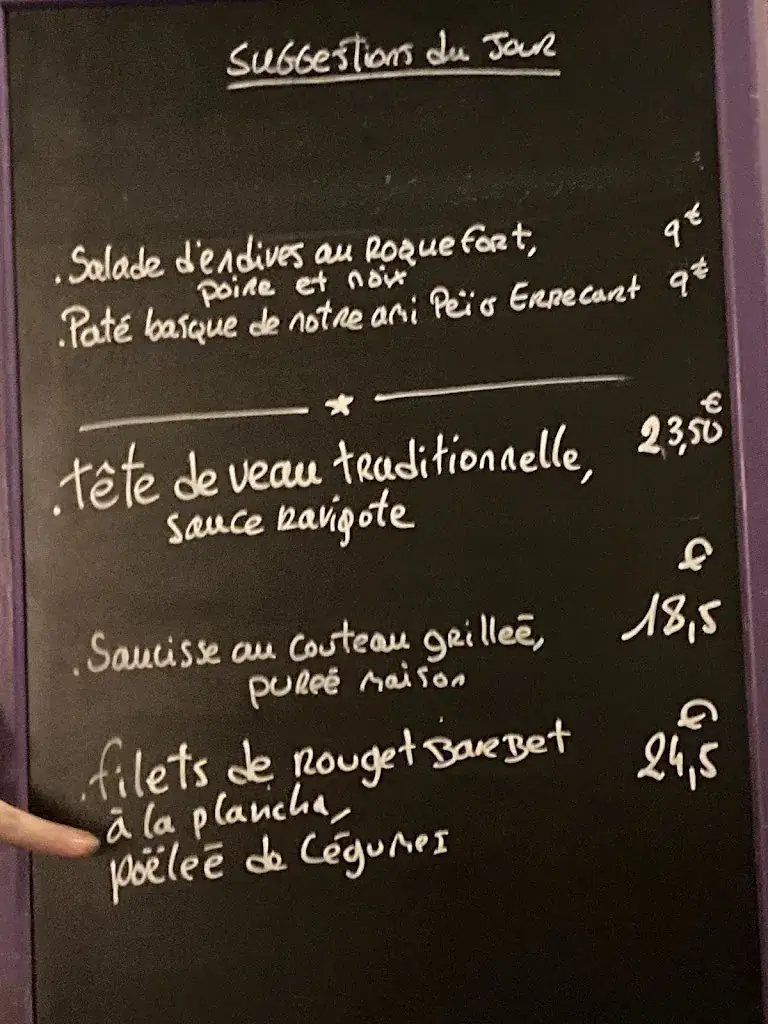 Suggestions du Jour
. Salade d'endives au Roquefort, 9€
poire et noix
. Paté basque de notre ami Peïo Errecart 9€
. tête de veau traditionnelle, 23,50€
sauce ravigote
. Saucisse au couteau grilleē, 18,5€
pureē maison
. filets de Rouget BarBet 24,5€
ā la plancha,
poëleē de légumes